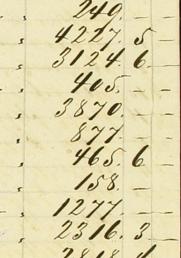 , 249. — —
, 4227. 5 —
, 3124. 6. —
, 405. — —
, 3870. — —
, 877 — —
, 465. 6 —
, 158. — —
, 1277 — —
, 2316. 3 —